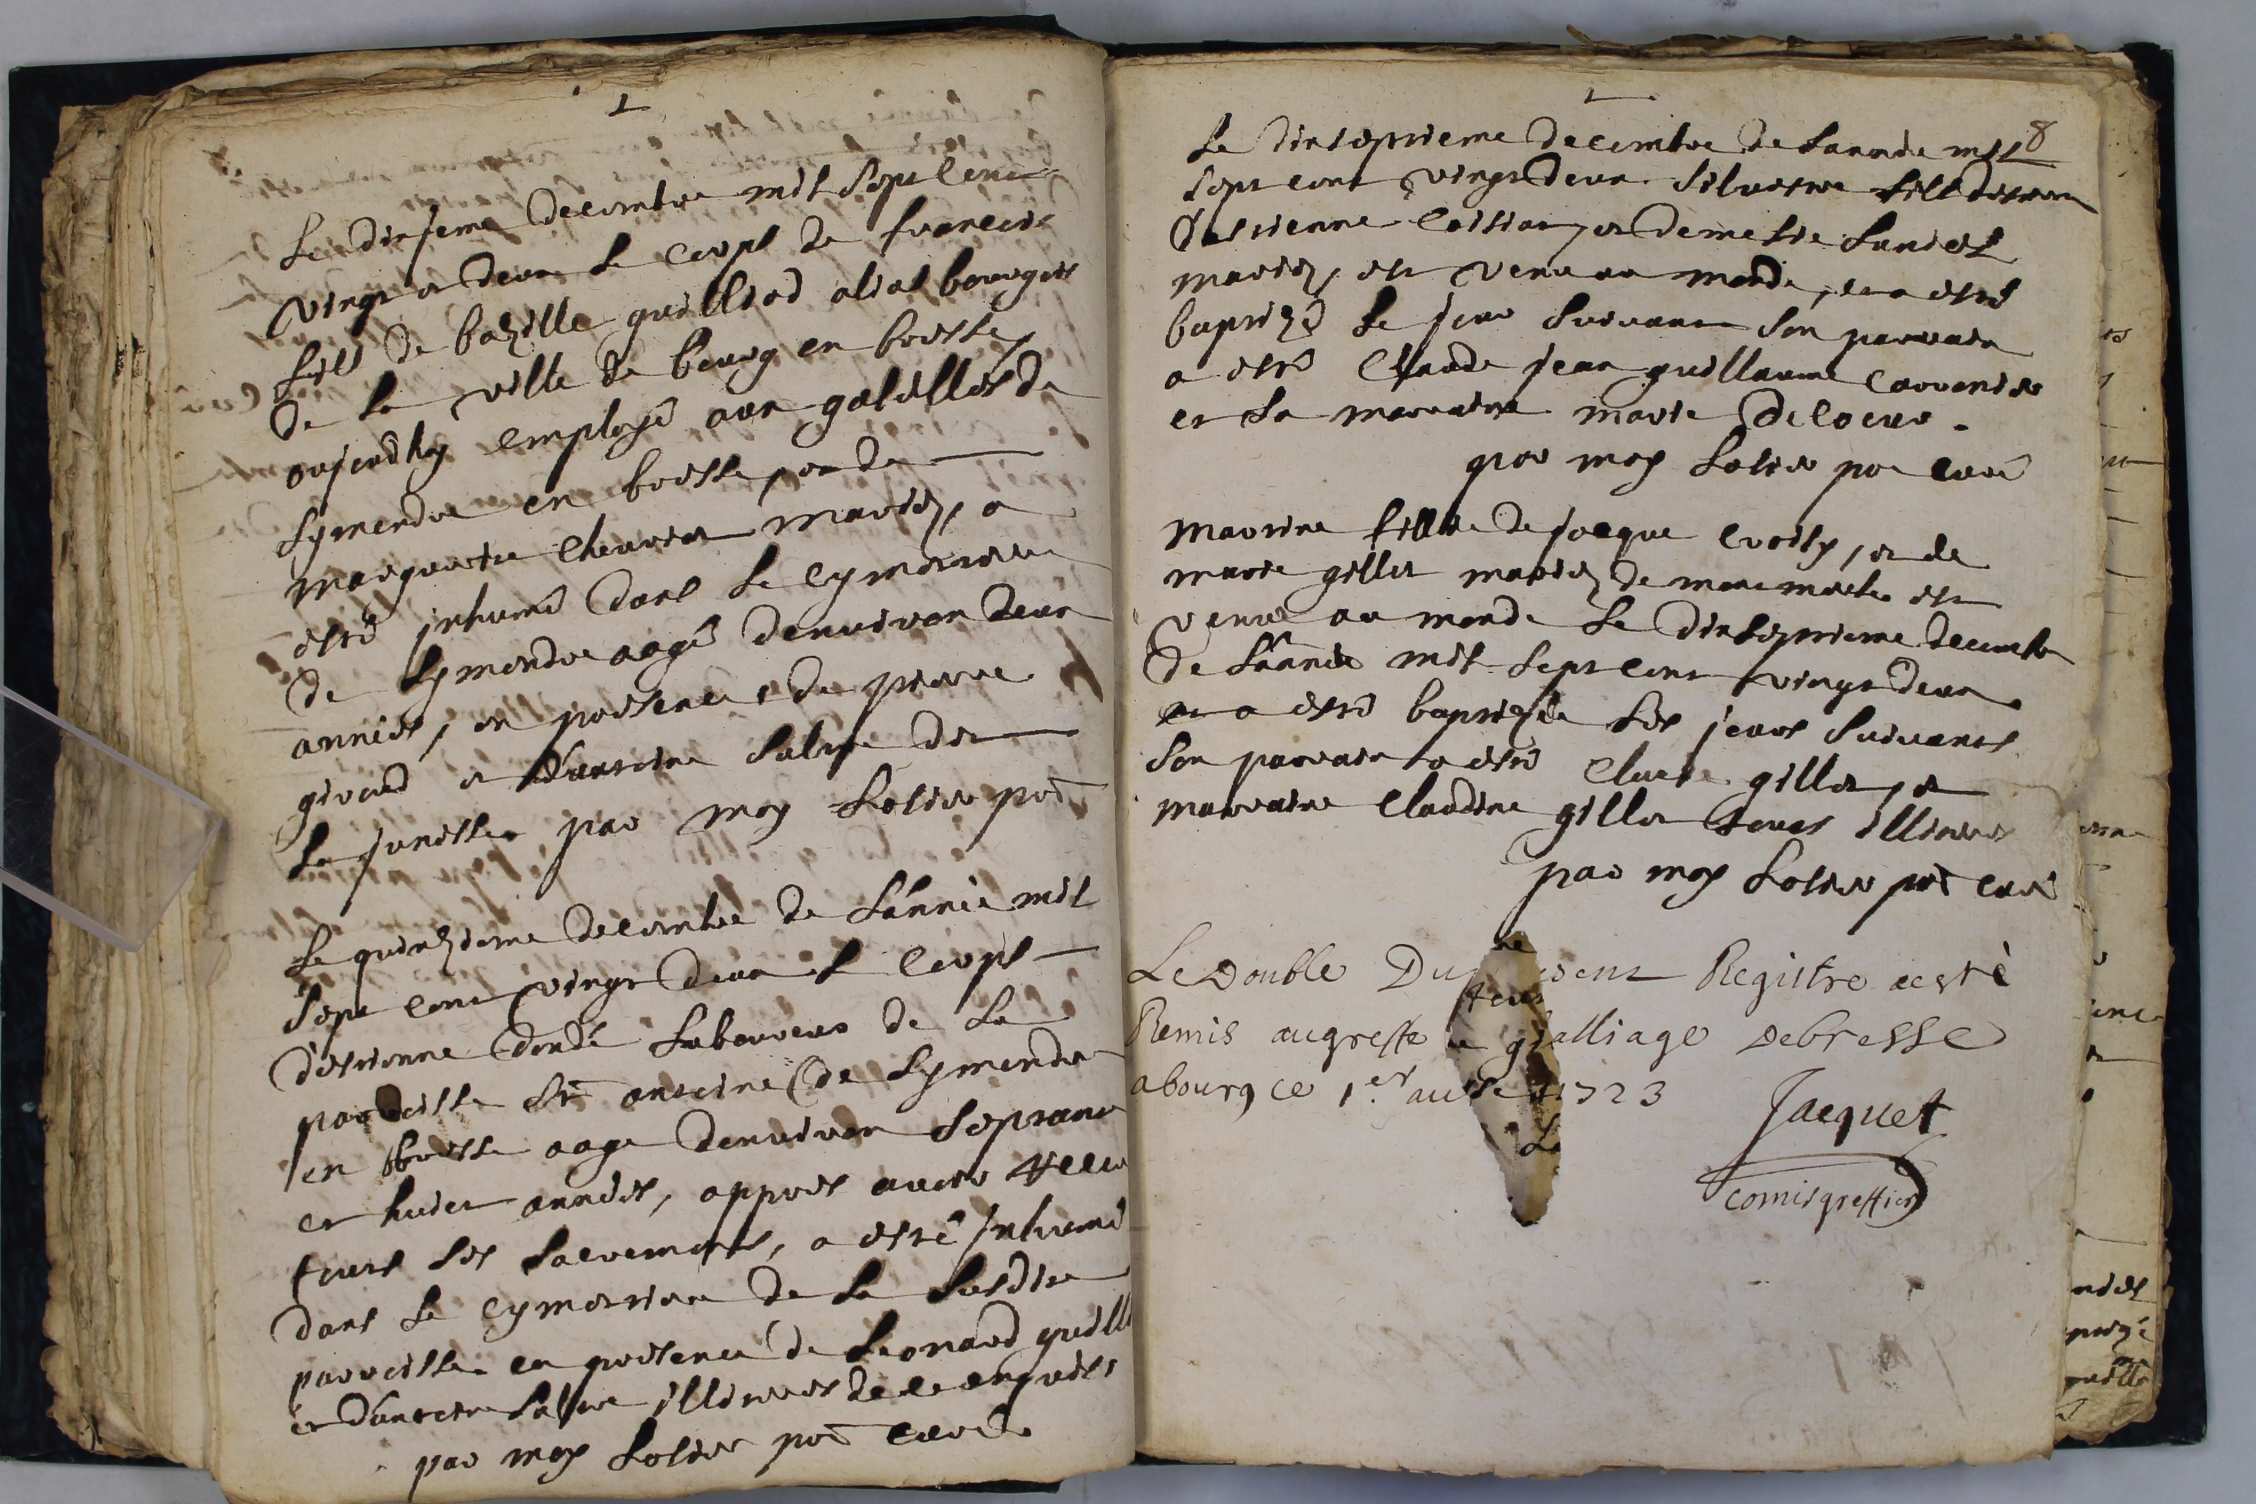 Le dixieme decembre mil sept cent
vingt et deux le corps de francois
fils de bazille guilliod alias bourgeois
de la ville de bourg en bresse
aujourdhuy employé aux gabelles de
Symandre en bresse, et de
marguerite chevrier mariez, a
esté inhumé dans le cymetiere
de Symandre aagé denviron deux
années, en presence de pierre
girard et d'antoine
la junesse par moy prt

Le quinzieme decembre de l'année mil
sept cent vingt deux le corps
d'estienne dondé laboureur de la
paroisse St antoine de Symandre
en bresse aage denviron septante
et huict années, appres avoir receu
tous les sacrements, a esté inhumé
dans le cymetiere de la susditte
paroisse en presence de Leonard guill
et d'antoine illiteres de ce enquis
par moy prt curé

8
Le dixseptieme decembre de l'année mil
sept cent vingt deux Silvestre fils
d'estienne et demesie
mariez, est venu au monde, et a esté
baptizé le jour suivant son parrain
a esté Claude jean guillaume
et la marraine marie
par moy prt curé

fillie de jacque et de
marie gillet mariez de est
venue au monde le dixseptieme decembre
de l'année mil sept cent vingt deux
et a esté baptizée les jours suivants
son parrain a esté gillet, et
marraine claudine gillet touts illiteres
par moy prt curé

Le Double Du Registre aesté
Remis augreffe Debresse
abourg ce 1.er 1723
Jacquet
comis greffier